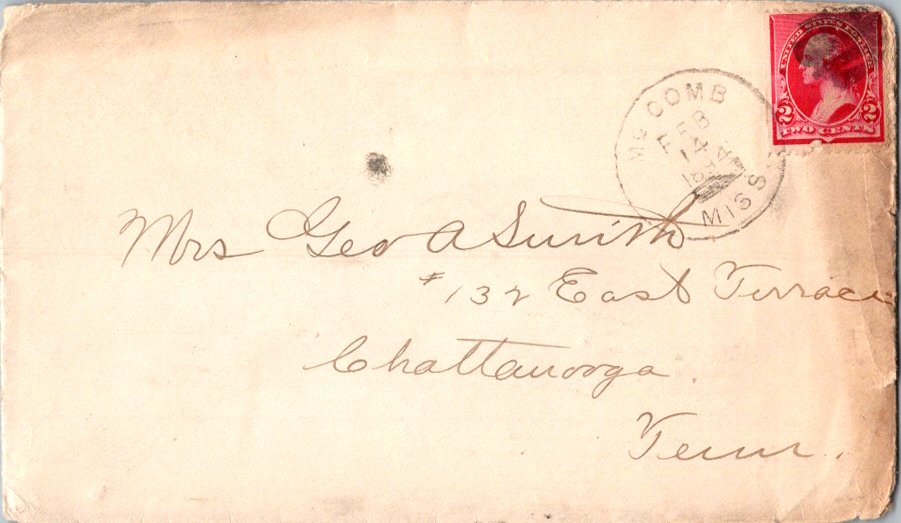 UNITED STATES POSTAGE
2 2
TWO CENTS
MC COMB
FEB
14
MISS
Mrs Geo A Smith
#132 East Terrace
Chattanooga
Tenn.